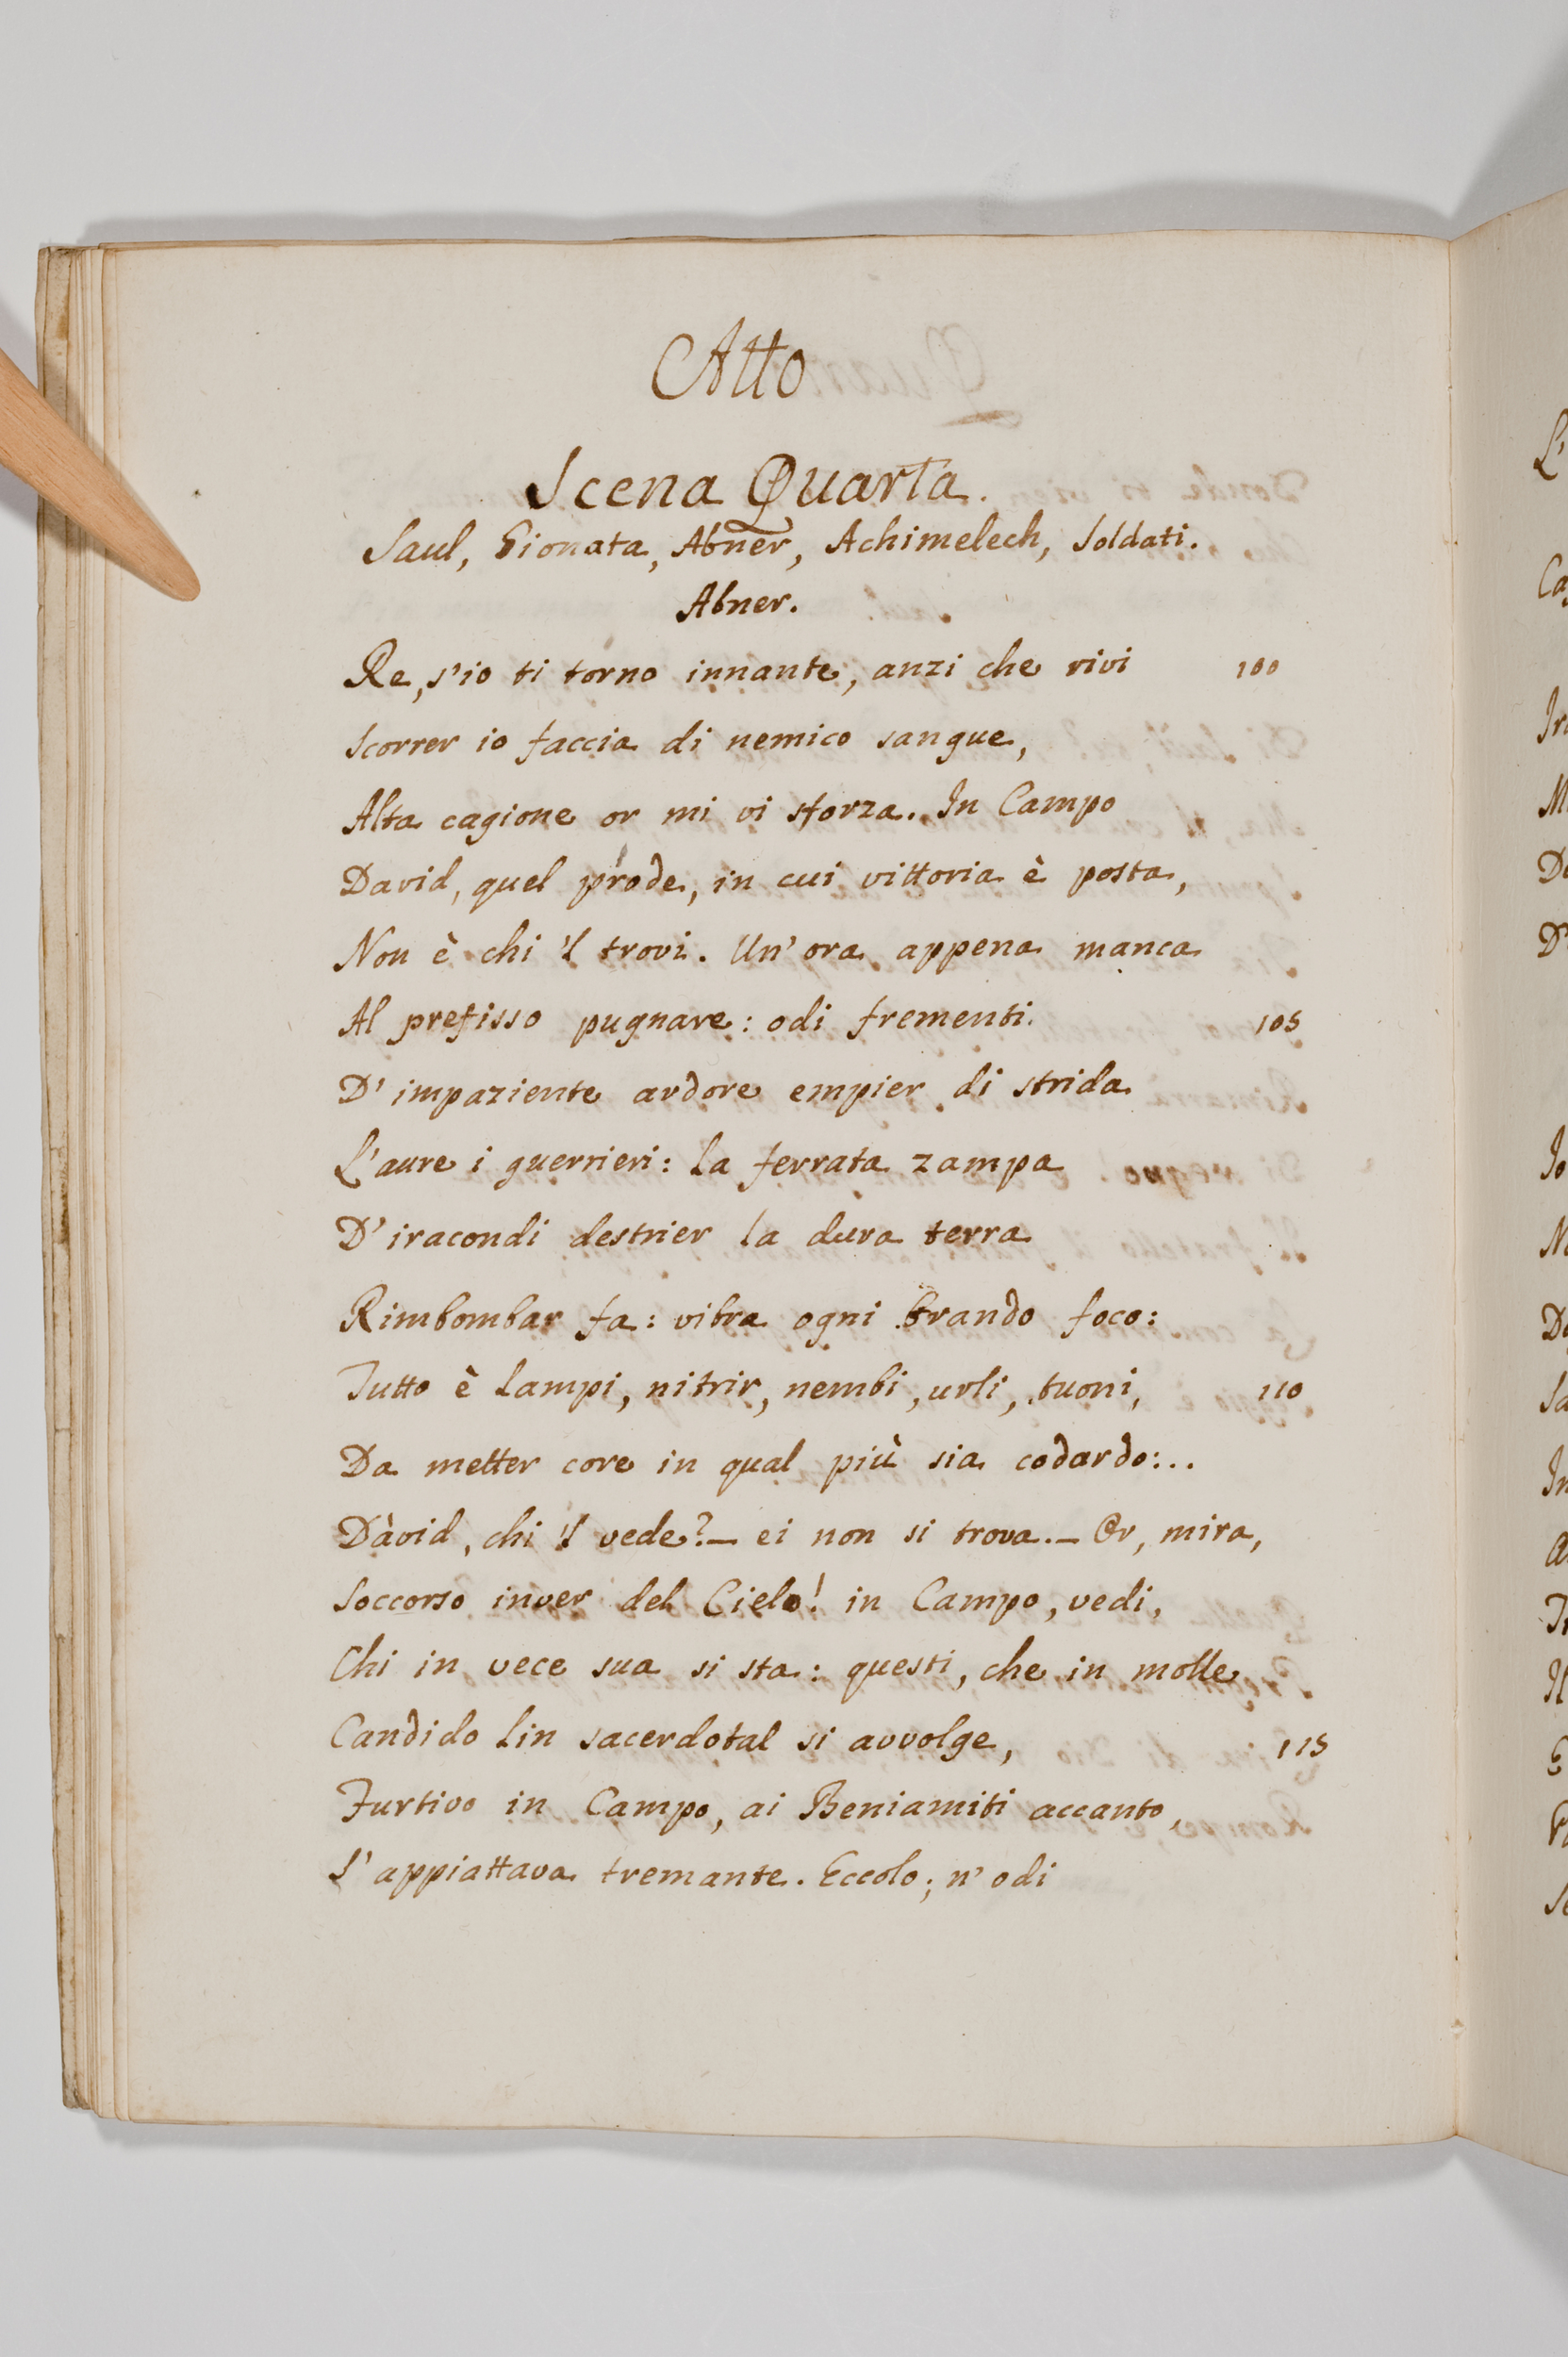 Atto
Scena Quarta.
Saul, Gionata, Abner, Achimelech, Soldati.
Abner.
Re, s'io ti torno innante, anzi che rivi 100
Scorrer io faccia di nemico sangue,
Alta cagione or mi vi sforza. In Campo
David, quel prode, in cui vittoria è posta,
Non è chi 'l trovi. Un'ora appena manca
Al prefisso pugnare: odi frementi 105
D'impaziente ardore empier di strida
L'aure i guerrieri: la ferrata zampa
D'iracondi destrier la dura terra
Rimbombar fa: vibra ogni brando foco:
Tutto è lampi, nitrir, nembi, urli, tuoni, 110
Da metter core in qual più sia codardo:..
Dàvid, chi 'l vede?— ei non si trova.— Or, mira,
Soccorso inver del Cielo! in Campo, vedi,
Chi in vece sua si sta: questi, che in molle
Candido lin sacerdotal si avvolge, 115
Furtivo in Campo, ai Beniamiti accanto,
S'appiattava tremante. Eccolo; n'odi
L'